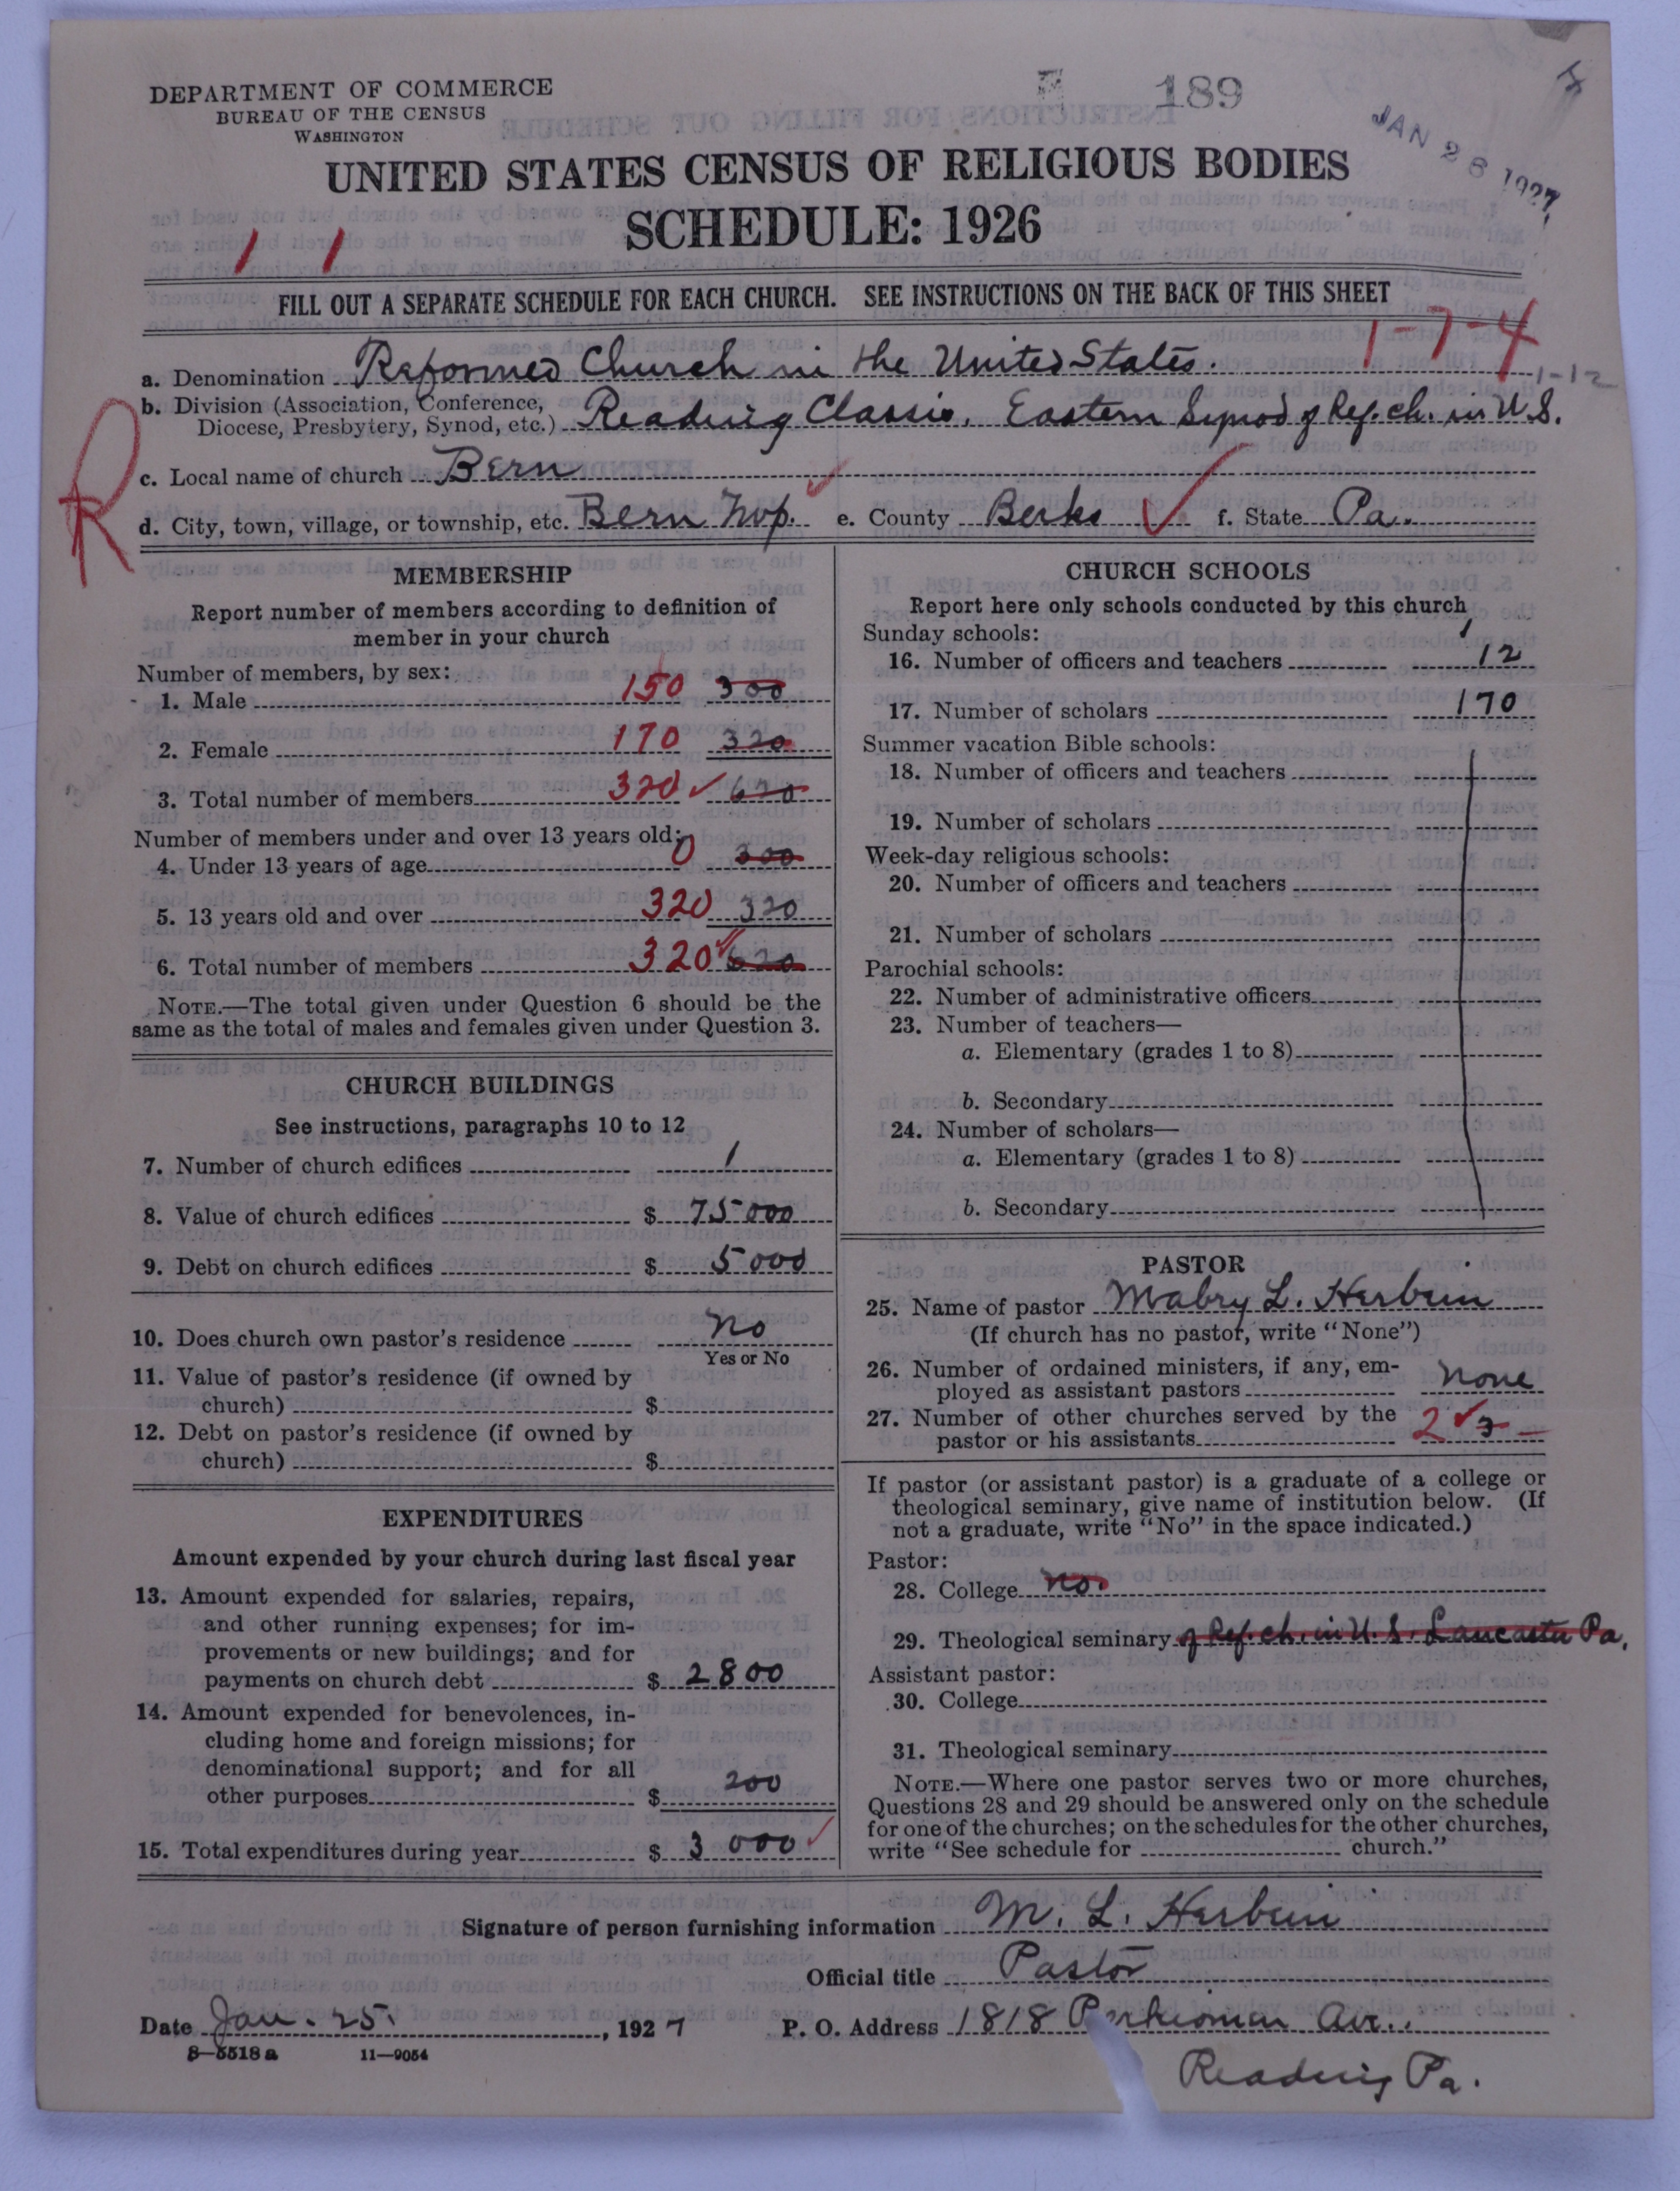 DEPARTMENT OF COMMERCE
BUREAU OF THE CENSUS
WASHINGTON
189
JAN 28 1927
UNITED STATES CENSUS OF RELIGIOUS BODIES
SCHEDULE: 1926
1 1
FILL OUT A SEPARATE SCHEDULE FOR EACH CHURCH. SEE INSTRUCTIONS ON THE BACK OF THIS SHEET
1-7-4
a. Denomination Reformed Church in the United States. 1-12
b. Division (Association, Conference,
Diocese, Presbytery, Synod, etc.) Reading Classis, Eastern Synod of Ref. ch. in U.S.
R
c. Local name of church Bern
d. City, town, village, or township, etc. Bern Twp. e. County Berks f. State Pa.
MEMBERSHIP
Report number of members according to definition of
member in your church
Number of members, by sex:
1. Male 150 300
2. Female 170 320
3. Total number of members 320 620
Number of members under and over 13 years old:
4. Under 13 years of age 0 300
5. 13 years old and over 320 320
6. Total number of members 320 620
NOTE.—The total given under Question 6 should be the
same as the total of males and females given under Question 3.
CHURCH BUILDINGS
See instructions, paragraphs 10 to 12
7. Number of church edifices 1
8. Value of church edifices $ 75000
9. Debt on church edifices $ 5000
10. Does church own pastor's residence no
Yes or No
11. Value of pastor's residence (if owned by
church) $
12. Debt on pastor's residence (if owned by
church) $
EXPENDITURES
Amount expended by your church during last fiscal year
13. Amount expended for salaries, repairs,
and other running expenses; for im-
provements or new buildings; and for
payments on church debt $ 2800
14. Amount expended for benevolences, in-
cluding home and foreign missions; for
denominational support; and for all
other purposes $ 200
15. Total expenditures during year $ 3000
CHURCH SCHOOLS
Report here only schools conducted by this church
Sunday schools: 1
16. Number of officers and teachers 12
17. Number of scholars 170
Summer vacation Bible schools:
18. Number of officers and teachers
19. Number of scholars
Week-day religious schools:
20. Number of officers and teachers
21. Number of scholars
Parochial schools:
22. Number of administrative officers
23. Number of teachers—
a. Elementary (grades 1 to 8)
b. Secondary
24. Number of scholars—
a. Elementary (grades 1 to 8)
b. Secondary
PASTOR
25. Name of pastor Mabry L. Herbein
(If church has no pastor, write "None")
26. Number of ordained ministers, if any, em-
ployed as assistant pastors none
27. Number of other churches served by the
pastor or his assistants 2 3
If pastor (or assistant pastor) is a graduate of a college or
theological seminary, give name of institution below. (If
not a graduate, write "No" in the space indicated.)
Pastor:
28. College no.
29. Theological seminary of Ref. ch. in U.S. Lancaster Pa.
Assistant pastor:
30. College
31. Theological seminary
NOTE.—Where one pastor serves two or more churches,
Questions 28 and 29 should be answered only on the schedule
for one of the churches; on the schedules for the other churches,
write "See schedule for church."
Signature of person furnishing information M. L. Herbein
Official title Pastor
Date Jan. 25, 1927 P. O. Address 1818 Perkiomen Ave.,
8—5518 a 11—9054
Reading Pa.